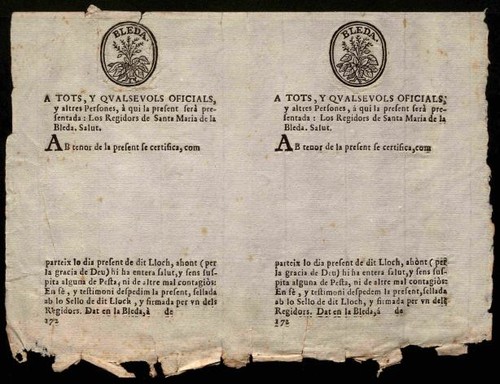 BLEDA.
A TOTS, Y QVALSEVOLS OFICIALS,
y altres Persones, à qui la present serà pre-
sentada: Los Regidors de Santa Maria de la
Bleda. Salut.
AB tenor de la present se certifica, com
parteix lo dia present de dit Lloch, ahont (per
la gracia de Deu) hi ha entera salut, y sens sus-
pita alguna de Pesta, ni de altre mal contagiòs:
En fè, y testimoni despedim la present, sellada
ab lo Sello de dit Lloch, y firmada per vn dels
Regidors. Dat en la Bleda, à de
172
BLEDA.
A TOTS, Y QVALSEVOLS OFICIALS,
y altres Persones, à qui la present serà pre-
sentada: Los Regidors de Santa Maria de la
Bleda. Salut.
AB tenor de la present se certifica, com
parteix lo dia present de dit Lloch, ahònt (per
la gracia de Deu) hi ha entera salut, y sens sus-
pita alguna de Pesta, ni de altre mal contagiòs:
En fè, y testimoni despedem la present, sellada
ab lo Sello de dit Lloch, y firmada per vn dels
Regidors. Dat en la Bleda, à de
172